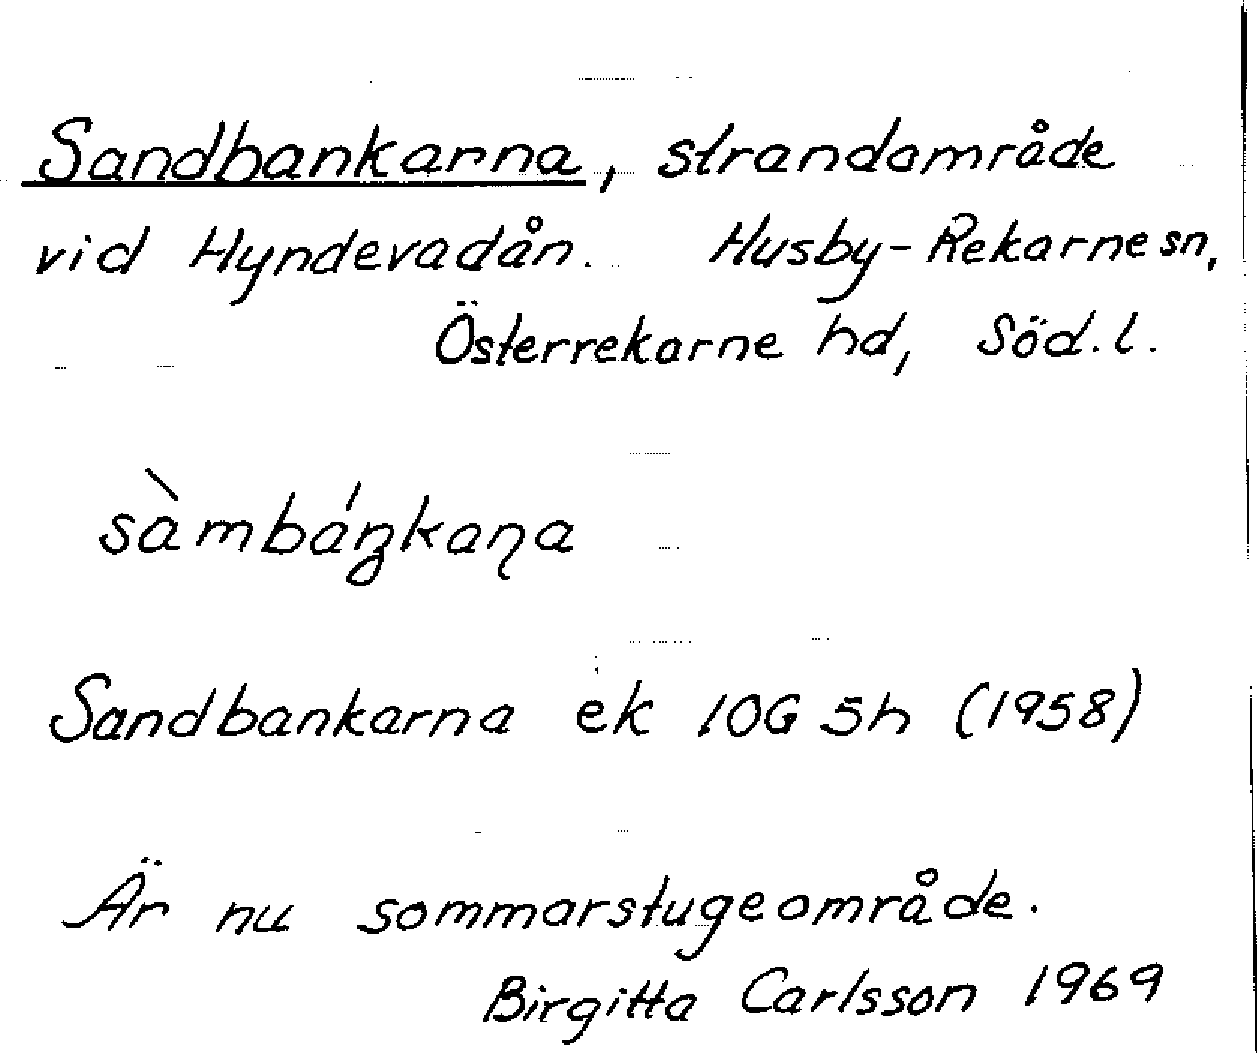 Sandbankarna, strandområde
vid Hyndevadån. Husby-Rekarne sn,
Österrekarne hd, Söd. l.
sàmbáŋkaɳa
Sandbankarna ek 10G 5h (1958)
Är nu sommarstugeområde.
Birgitta Carlsson 1969